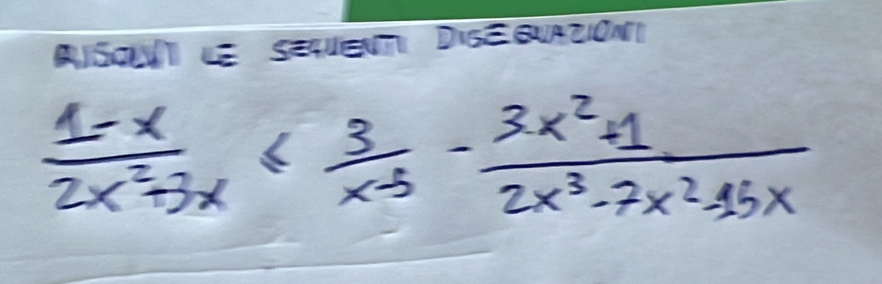 RISOLVI LE SEGUENTI DISEQUAZIONI
(1-x)/(2x²+3x) ≤ 3/(x-5) - (3x²+1)/(2x³-7x²-15x)